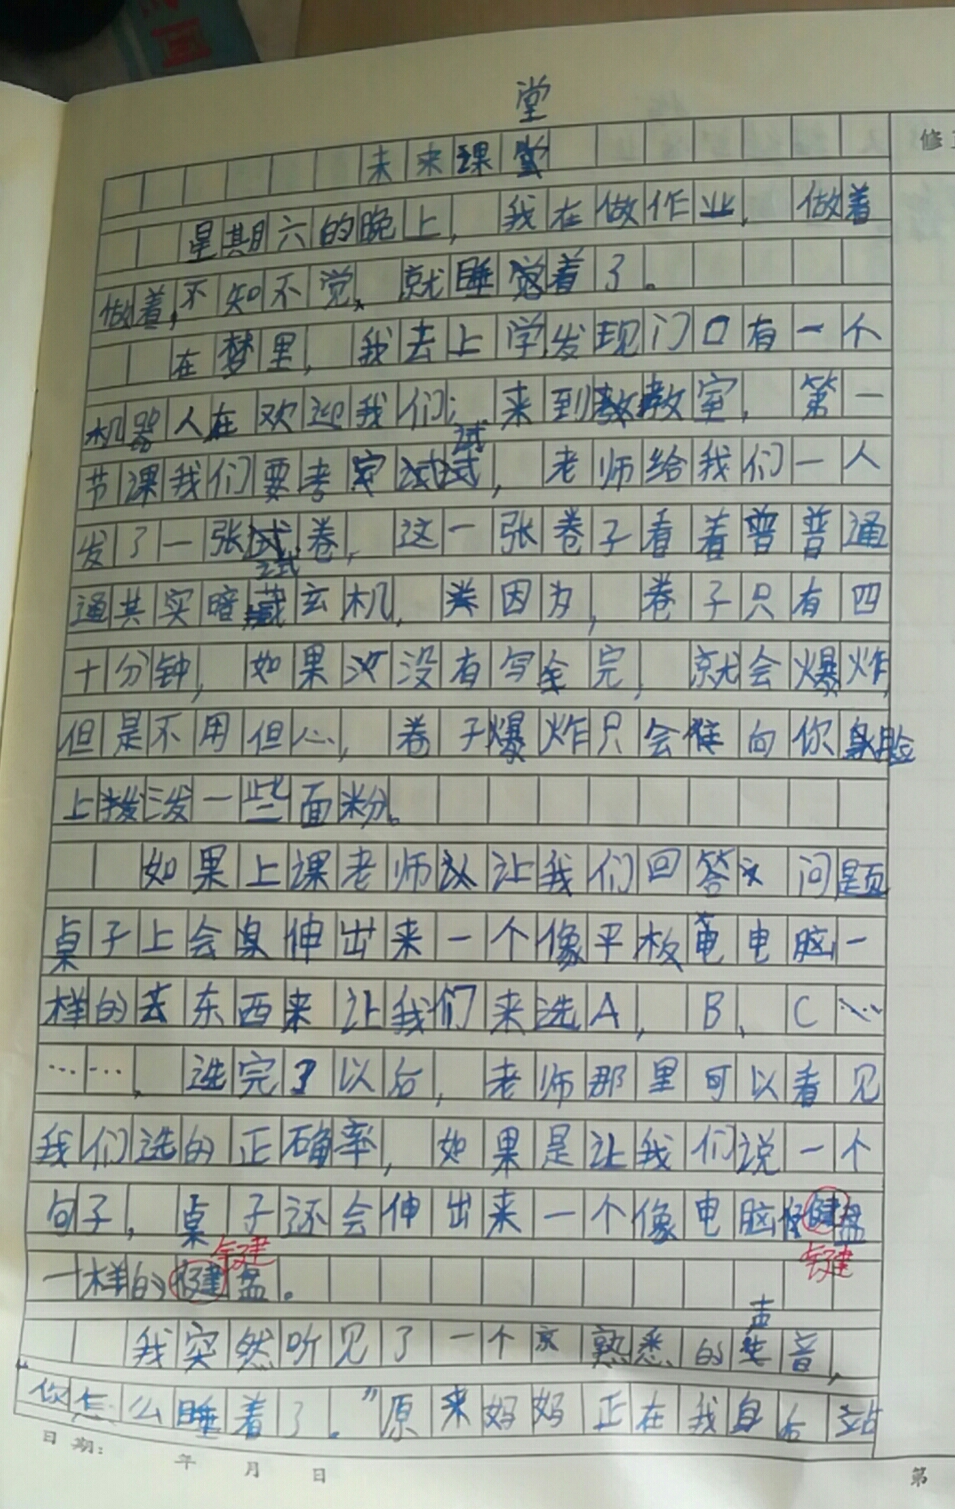 堂
未来课堂
修
星期六的晚上，我在做作业，做着
做着，不知不觉，就睡着了。
在梦里，我去上学发现门口有一个
机器人在欢迎我们；来到教室，第一
节课我们要考试，老师给我们一人
发了一张试卷，这一张卷子看着普普通
通其实暗藏玄机，因为，卷子只有四
十分钟，如果没有写完，就会爆炸，
但是不用但心，卷子爆炸只会向你脸
上泼一些面粉。
如果上课老师让我们回答问题
桌子上会伸出来一个像平板电脑一
样的东西来让我们来选A，B，C…
……，选完了以后，老师那里可以看见
我们选的正确率，如果是让我们说一个
句子，桌子还会伸出来一个像电脑健盘
键 键
一样的健盘。
声
我突然听见了一个熟悉的声音，
“你怎么睡着了。”原来妈妈正在我身后站
日期： 年 月 日 第